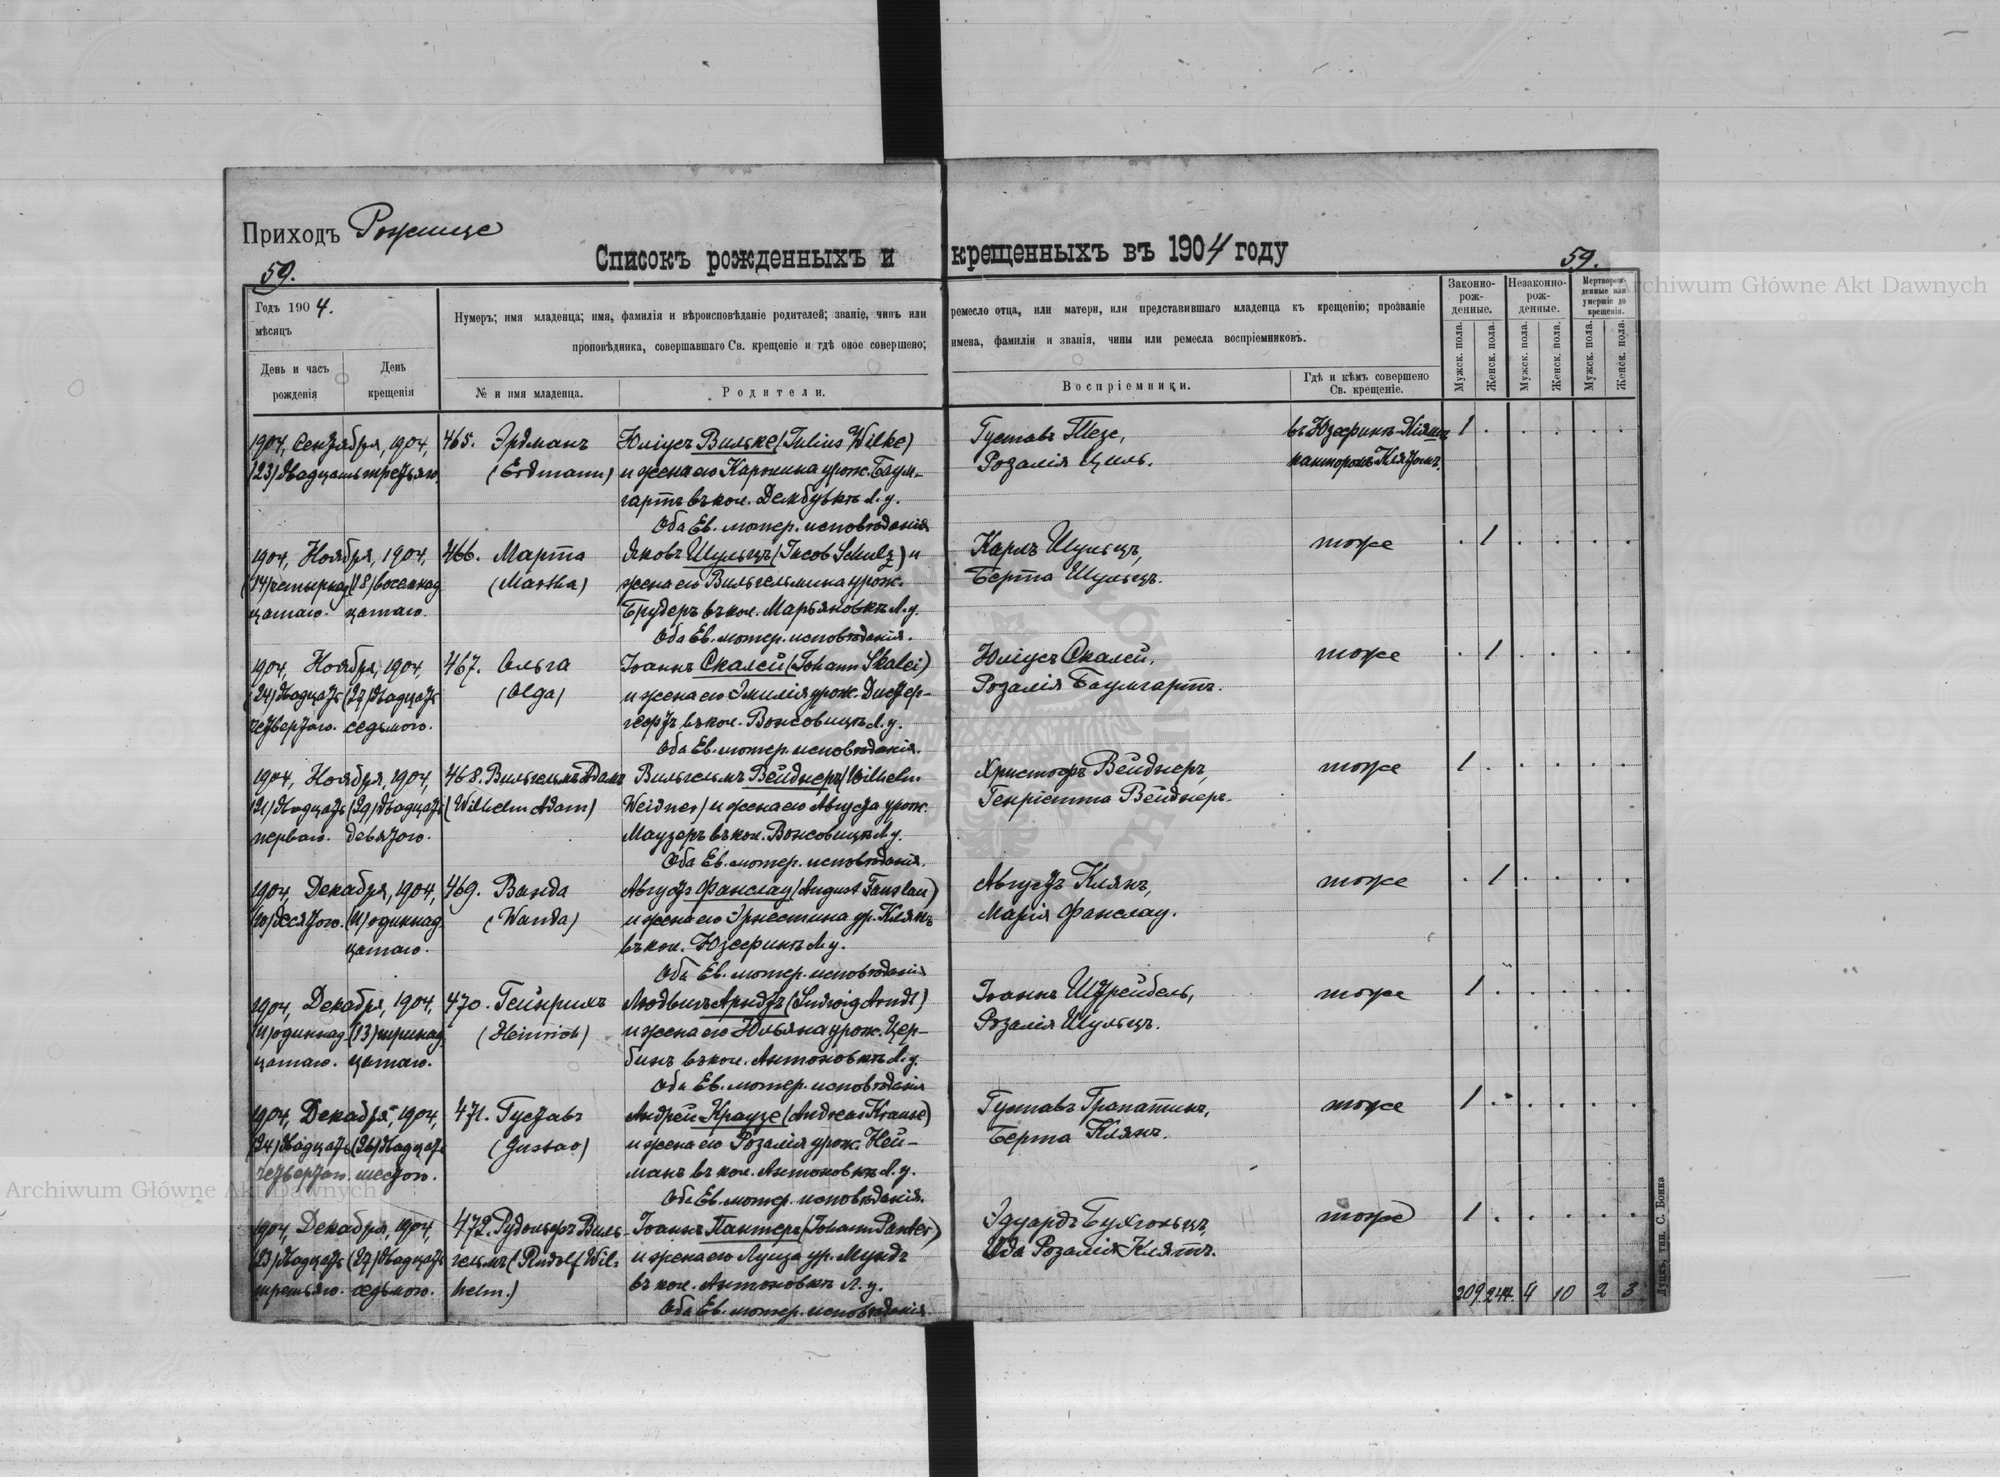 Приходъ Рожище
Списокъ рожденныхъ и крещенныхъ въ 1904 году
59.
59.
Archiwum Główne Akt Dawnych
Годъ 1904.
мѣсяцъ
День и часъ рожденія
День крещенія
Нумеръ; имя младенца; имя, фамилія и вѣроисповѣданіе родителей; званіе, чинъ или ремесло отца, или матери, или представившаго младенца къ крещенію; прозваніе
проповѣдника, совершавшаго Св. крещеніе и гдѣ оное совершено; имена, фамиліи и званія, чины или ремесла воспріемниковъ.
№ и имя младенца.
Родители.
Воспріемники.
Гдѣ и кѣмъ совершено Св. крещеніе.
Законно-рож-денные.
Незаконно-рож-денные.
Мертворож-денные или умершіе до крещенія.
Мужск. пола.
Женск. пола.
Мужск. пола.
Женск. пола.
Мужск. пола.
Женск. пола.
1904, Сентября, 1904, 465. Эрдманъ Юліусъ Вильке (Julius Wilke) Густавъ Тезе, въ Юзефинѣ 1
(23) двадцать третьяго (Erdmann) и жена его Каролина урож. Баум- Розалія Циль. канторомъ Клятомъ.
гартъ въ кол. Дембувкѣ Л. у.
Оба Ев. лютер. исповѣданія
1904, Ноября, 1904, 466. Марта Яковъ Шульцъ (Jacob Schulz) и Карлъ Шульцъ, тоже 1
(14) четырнад (18) восемнад (Martha) жена его Вильгельмина урож. Берта Шульцъ.
цатаго. цатаго. Брудеръ въ кол. Марьяновкѣ Л. у.
Оба Ев. лютер. исповѣданія.
1904, Ноября, 1904, 467. Ольга Іоаннъ Скалей (Johann Skalei) Юліусъ Скалей, тоже 1
(24) двадцать (27) двадцать (Olga) и жена его Эмилія урож. Дистер- Розалія Баумгартъ.
четвертаго. седьмого. гефтъ въ кол. Вонсовицѣ Л. у.
Оба Ев. лютер. исповѣданія.
1904, Ноября, 1904, 468. Вильгельмъ Адамъ Вильгельмъ Вейднеръ (Wilhelm Христофъ Вейднеръ, тоже 1
(21) двадцать (29) двадцать (Wilhelm Adam) Weidner) и жена его Августа урож. Генріетта Вейднеръ.
перваго. девятого. Маузеръ въ кол. Вонсовицѣ Л. у.
Оба Ев. лютер. исповѣданія.
1904, Декабря, 1904, 469. Ванда Августъ Фанслау (August Fanslau) Августъ Клянъ, тоже 1
(10) десятого. (11) одиннад (Wanda) и жена его Эрнестина ур. Клянъ Марія Фанслау.
цатаго. въ кол. Юзефинѣ Л. у.
Оба Ев. лютер. исповѣданія
1904, Декабря, 1904, 470. Гейнрихъ Людвигъ Арндтъ (Ludwig Arndt) Іоаннъ Штрейбель, тоже 1
(11) одиннад (13) тринад (Heinrich) и жена его Юльяна урож. Цер- Розалія Шульцъ.
цатаго. цатаго. бинъ въ кол. Антоновкѣ Л. у.
Оба Ев. лютер. исповѣданія
1904, Декабря, 1904, 471. Густавъ Андрей Краузе (Andreas Krause) Густавъ Грапатинъ, тоже 1
(24) двадцать (26) двадцать (Gustav) и жена его Розалія урож. Ней- Берта Клянъ.
четвертаго. шестого. манъ въ кол. Антоновкѣ Л. у.
Оба Ев. лютер. исповѣданія.
1904, Декабря, 1904, 472. Рудольфъ Виль- Іоаннъ Пантеръ (Johann Panter) Эдуардъ Бухгольцъ, тоже 1
(23) двадцать (27) двадцать гельмъ (Rudolf Wil- и жена его Луиза ур. Мундъ Ида Розалія Клятъ.
третьяго. седьмого. helm.) въ кол. Антоновкѣ Л. у.
Оба Ев. лютер. исповѣданія
209 244. 4 10 2 3
Луцкъ, тип. С. Бонка
Archiwum Główne Akt Dawnych